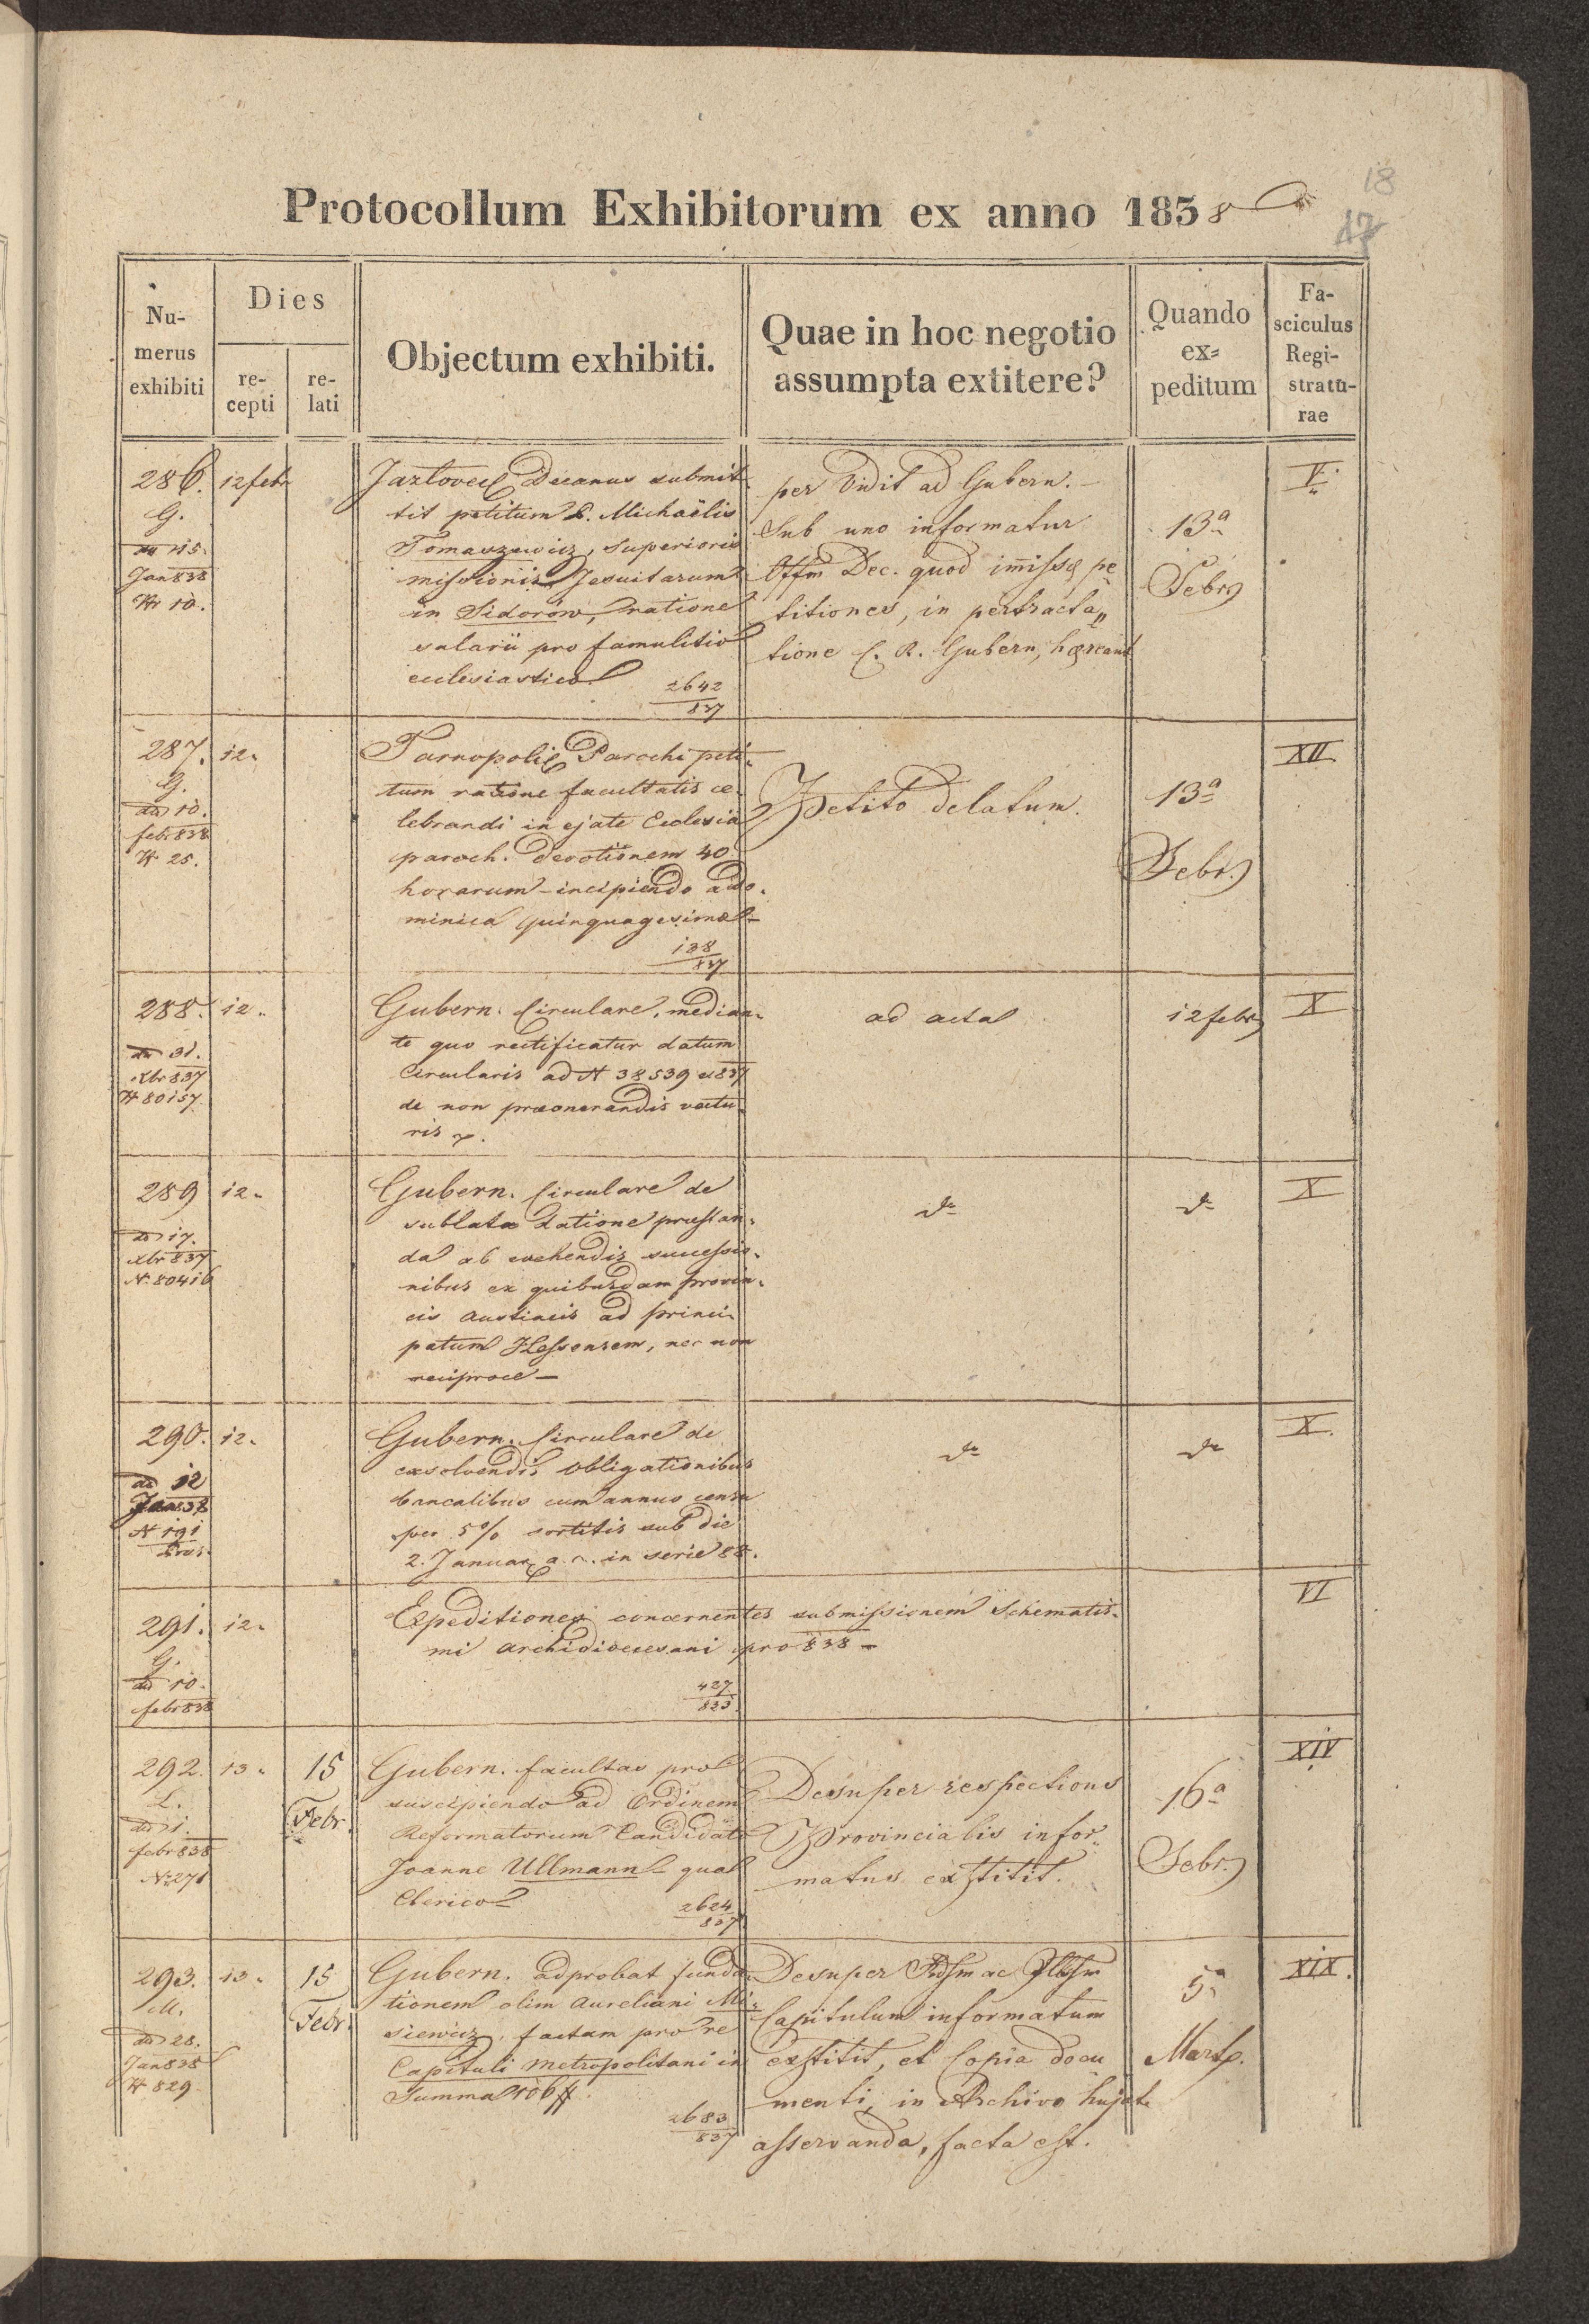 18
17
Protocollum Exhibitorum ex anno 1838
Nu-
merus
exhibiti
Dies
re-
cepti
re-
lati
Objectum exhibiti.
Quae in hoc negotio
assumpta extitere?
Quando
ex=
peditum
Fa-
sciculus
Regi-
stratu-
rae
286.
G.
dd 15.
Jan 838
N 10.
12 febr
Jazlovec Decanus submit
tit petitum P. Michaëlis
Tomaszewicz, Superioris
missionis Jesuitarum
in Sidorów, ratione
salarii pro famulitio
ecclesiastico
2642
837
per Vidit ad Gubern. -
Sub uno informatur
Offm Dec. quod imissę pe
titiones, in pertracta„
tione C. R. Gubern, hęreant
13ª
Febr
V.
287.
G.
dd 10.
febr 838
N 25.
12.
Tarnopolię Parochi peti-
tum ratione facultatis ce-
lebrandi in ejate Ecclesia
paroch. devotionem 40
horarum - incipiendo a do-
minica Quinquagesimæ -
138
837
Petito delatum.
13ª
Febr.
XII
288.
dd 31.
Xbr 837
N 80157.
12.
Gubern. Circulare, median-
te quo rectificatur datum
Circularis ad N 38539 ex 837
de non præonerandis vectu-
ris
ad acta
12 febr
X
289
dd 17.
Xbr 837
N. 80416
12.
Gubern. Circulare de
sublata datione præstan-
da ab evehendis successio-
nibus ex quibusdam provin-
ciis Austriacis ad princi-
patum Hessensem, nec non
reciproce -
do
do
X
290.
dd 12
Jan 838
N 191
12.
Gubern. Circulare de
exsolvendis obligationibus
bancalibus cum annuo censu
per 5% sortitis sub die
2. Januar a. c. in serie 88.
do
do
X.
291.
G.
dd 10.
febr 838
12.
Expeditiones concernentes submissionem Schematis-
mi Archidioecesani pro 838 -
427
835
VI
292.
L.
dd 1.
febr 838
N. 271
13.
15
Febr.
Gubern. facultas pro
suscipiendo ad Ordinem
Reformatorum Candidato
Joanne Ullmann qua
Clerico
2624
837
Desuper respectivus
Provincialis infor„
matus exstitit.
16ª
Febr.
XIV
293.
M.
dd 28.
Jan 838
N 829
13.
15
Febr.
Gubern. adprobat funda-
tionem olim Aureliani Mi-
siewicz, factam pro re
Capituli Metropolitani in
Summa
2683
837
Desuper
Capitulum informatum
exstitit, et Copia docu
menti, in Archivo hujate
asservanda, facta est.
5ª
XIX.